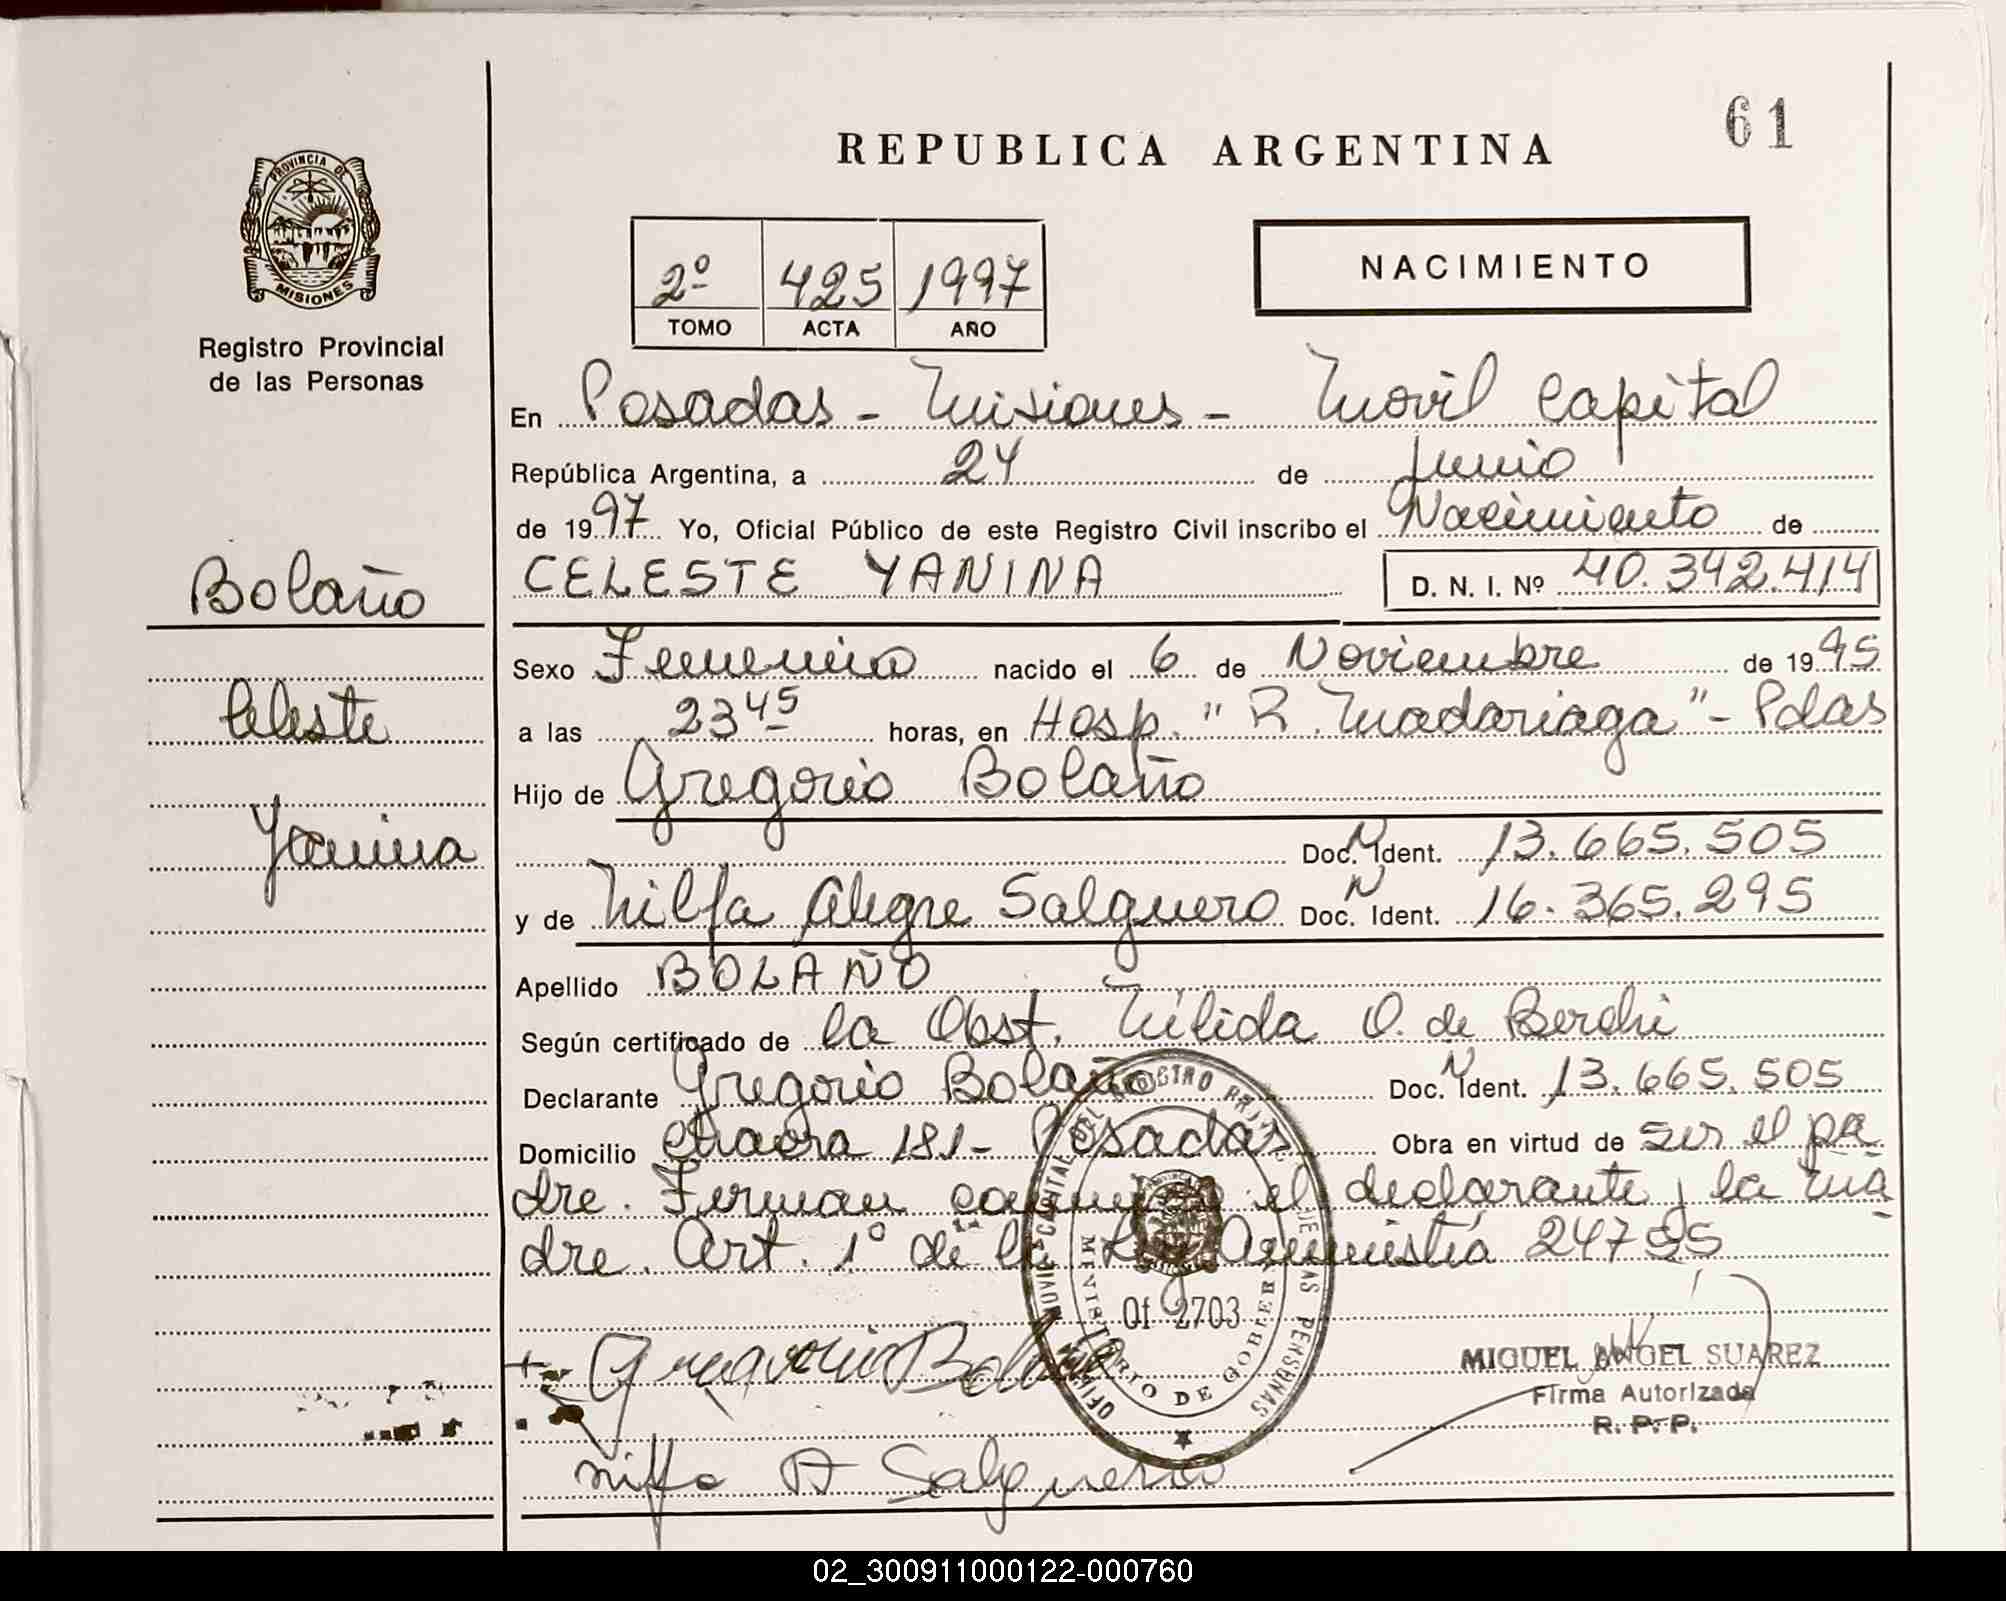 61
REPUBLICA ARGENTINA
PROVINCIA DE
MISIONES
Registro Provincial
de las Personas
2º 425 1997
TOMO ACTA AÑO
NACIMIENTO
En Posadas - Misiones - Movil Capital
República Argentina, a 24 de Junio
de 1997 Yo, Oficial Público de este Registro Civil inscribo el Nacimiento de
CELESTE YANINA D. N. I. Nº 40.342.414
Bolaño
Celeste
Yanina
Sexo Femenino nacido el 6 de Noviembre de 1995
a las 23 45 horas, en Hosp. "R. Madariaga" - Pdas
Hijo de Gregorio Bolaño
Doc. N Ident. 13.665.505
y de Nilfa Alegre Salguero Doc. N Ident. 16.365.295
Apellido BOLAÑO
Según certificado de la Obst. Nélida O. de Berchi
Declarante Gregorio Bolaño Doc. N Ident. 13.665.505
Domicilio Chacra 181 - Posadas Obra en virtud de ser el pa
dre. Firman conmigo el declarante y la ma
dre. Art. 1º de la Ley Amnistía 24755
Of 2703
MINISTERIO DE GOBIERNO
Gregorio Bolaño
MIGUEL ANGEL SUAREZ
Firma Autorizada
R. P. P.
Nilfa A Salguero
02_300911000122-000760